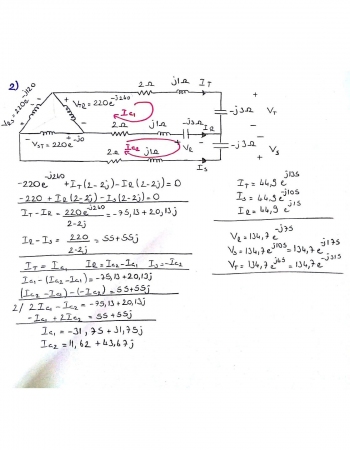 2)
2Ω j1Ω I_T
-V_RS=220e^-j120
V_TR=220e^-j240
I_c1
-j3Ω V_T
2Ω j1Ω -j3Ω I_R
-V_ST=220e^-j0
I_c2
V_R
-j3Ω V_S
2Ω j1Ω I_S
-220e^-j240 + I_T(2-2j) - I_R(2-2j)=0
-220 + I_R(2-2j) - I_S(2-2j)=0
I_T - I_R = 220e^-j240 / 2-2j = -75,13+20,13j
I_R - I_S = 220 / 2-2j = 55+55j
I_T = I_c1 I_R = I_c2-I_c1 I_S=-I_c2
I_c1-(I_c2-I_c1)=-75,13+20,13j
(I_c2-I_c1)-(-I_c2)=55+55j
2/ 2I_c1 - I_c2 = -75,13+20,13j
-I_c1 + 2I_c2 = 55+55j
I_c1 = -31,75+31,75j
I_c2 = 11,62+43,67j
I_T = 44,9 e^j135
I_S = 44,9 e^-j105
I_R = 44,9 e^j15
V_R = 134,7 e^-j75
V_S = 134,7 e^j105 = 134,7 e^-j175
V_T = 134,7 e^j45 = 134,7 e^-j315